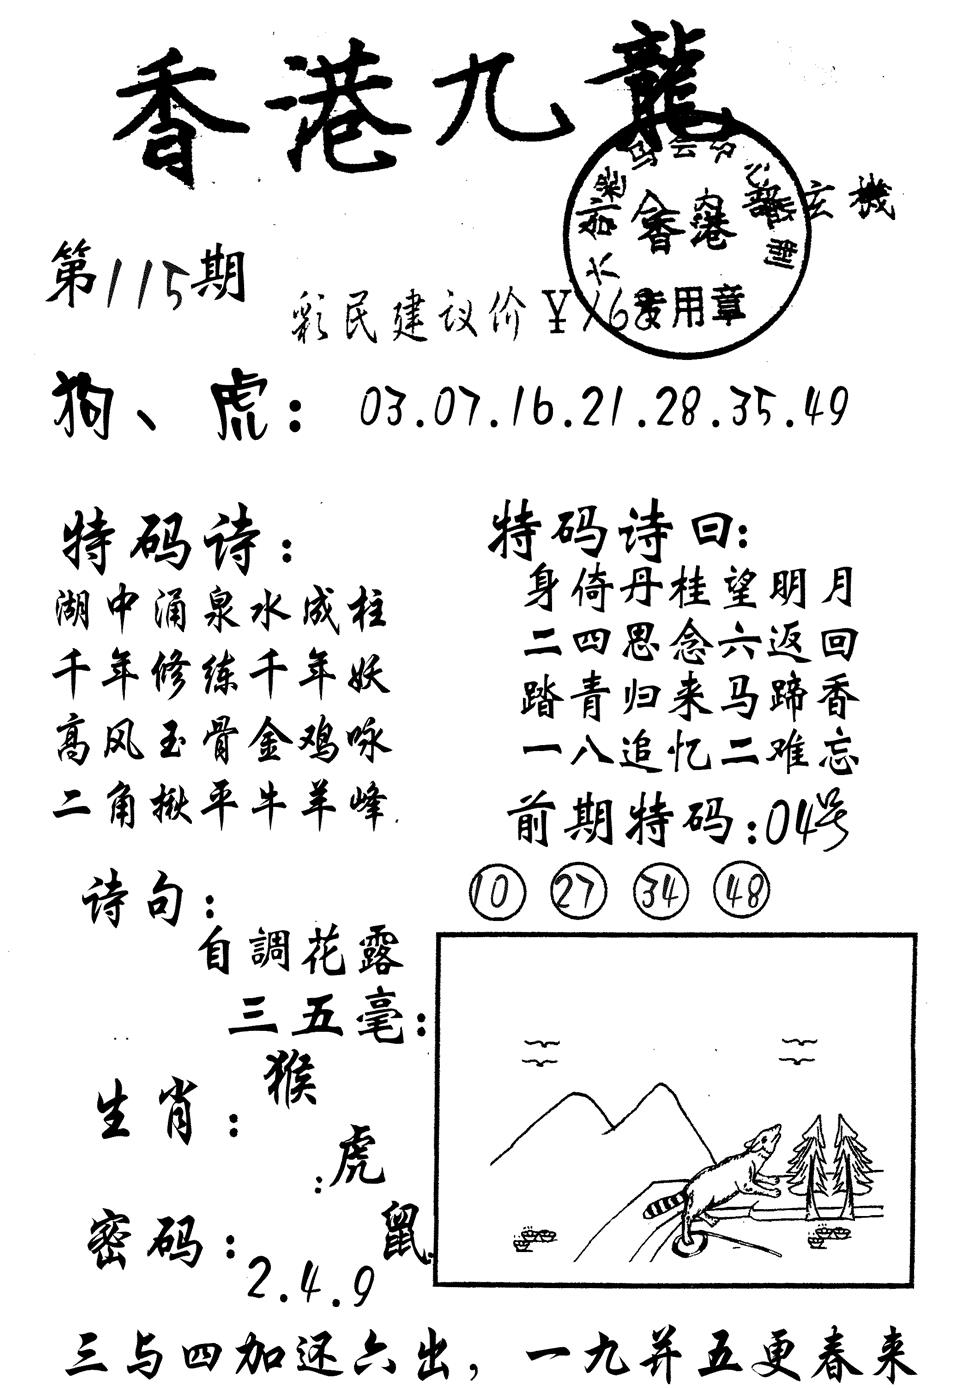 香港九龍
玄機
香港
专用章
第115期
彩民建议价¥168
狗、虎：03.07.16.21.28.35.49
特码诗：
湖中涌泉水成柱
千年修练千年妖
高风玉骨金鸡咏
二角揪平牛羊峰
特码诗曰：
身倚丹桂望明月
二四思念六返回
踏青归来马蹄香
一八追忆二难忘
前期特码：04号
10 27 34 48
诗句：
自調花露
三五毫：
生肖：猴
：虎
鼠
密码：2.4.9
三与四加还六出，一九并五更春来